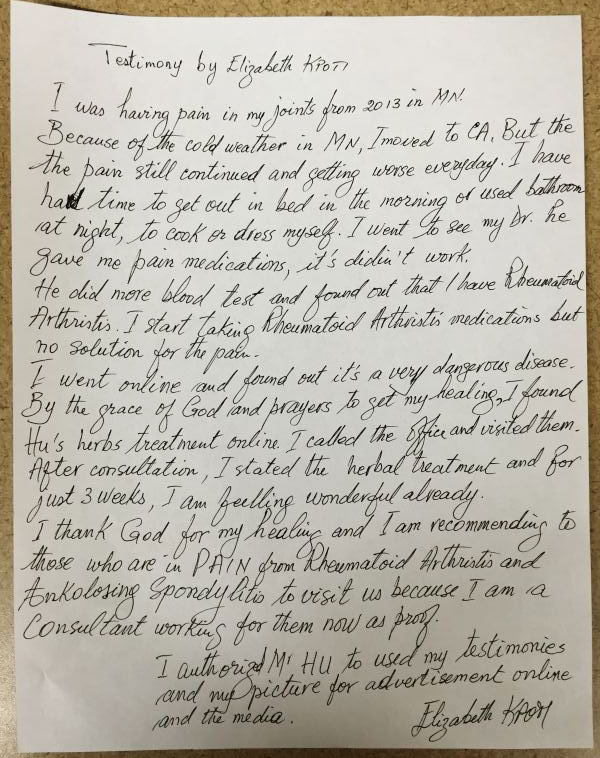 Testimony by Elizabeth KPOTI
I was having pain in my joints from 2013 in MN.
Because of the cold weather in MN, I moved to CA. But the
the pain still continued and getting worse everyday. I have
hard time to get out in bed in the morning or used bathroom
at night, to cook or dress myself. I went to see my Dr. he
gave me pain medications, it's didin't work.
He did more blood test and found out that I have Rheumatoid
Arthristis. I start taking Rheumatoid Arthristis medications but
no solution for the pain.
I went online and found out it's a very dangerous disease.
By the grace of God and prayers to get my healing, I found
Hu's herbs treatment online. I called the office and visited them.
After consultation, I stated the herbal treatment and for
just 3 weeks, I am feelling wonderful already.
I thank God for my healing and I am recommending to
those who are in PAIN from Rheumatoid Arthristis and
Ankolosing Spondylitis to visit us because I am a
Consultant working for them now as proof.
I authorized Mr HU to used my testimonies
and my picture for advertisement online
and the media.
Elizabeth KPOTI